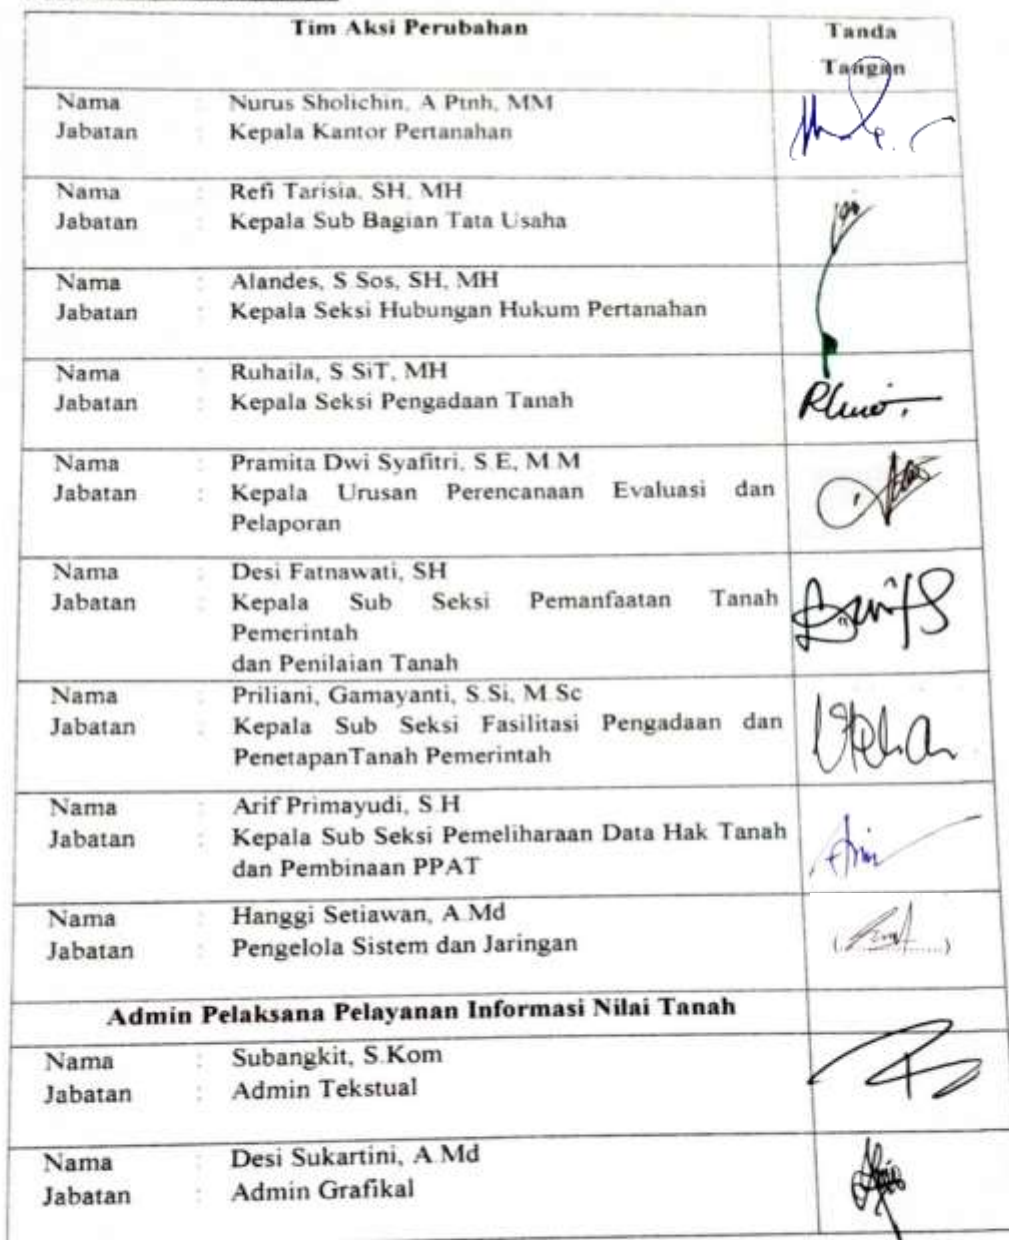 Tim Aksi Perubahan
Tanda
Tangan
Nama : Nurus Sholichin, A Ptnh, MM
Jabatan : Kepala Kantor Pertanahan
Nama : Refi Tarisia, SH, MH
Jabatan : Kepala Sub Bagian Tata Usaha
Nama : Alandes, S Sos, SH, MH
Jabatan : Kepala Seksi Hubungan Hukum Pertanahan
Nama : Ruhaila, S SiT, MH
Jabatan : Kepala Seksi Pengadaan Tanah
Nama : Pramita Dwi Syafitri, S.E, M.M
Jabatan : Kepala Urusan Perencanaan Evaluasi dan
Pelaporan
Nama : Desi Fatnawati, SH
Jabatan : Kepala Sub Seksi Pemanfaatan Tanah
Pemerintah
dan Penilaian Tanah
Nama : Priliani, Gamayanti, S.Si, M.Sc
Jabatan : Kepala Sub Seksi Fasilitasi Pengadaan dan
PenetapanTanah Pemerintah
Nama : Arif Primayudi, S.H
Jabatan : Kepala Sub Seksi Pemeliharaan Data Hak Tanah
dan Pembinaan PPAT
Nama : Hanggi Setiawan, A.Md
Jabatan : Pengelola Sistem dan Jaringan
Admin Pelaksana Pelayanan Informasi Nilai Tanah
Nama : Subangkit, S.Kom
Jabatan : Admin Tekstual
Nama : Desi Sukartini, A.Md
Jabatan : Admin Grafikal